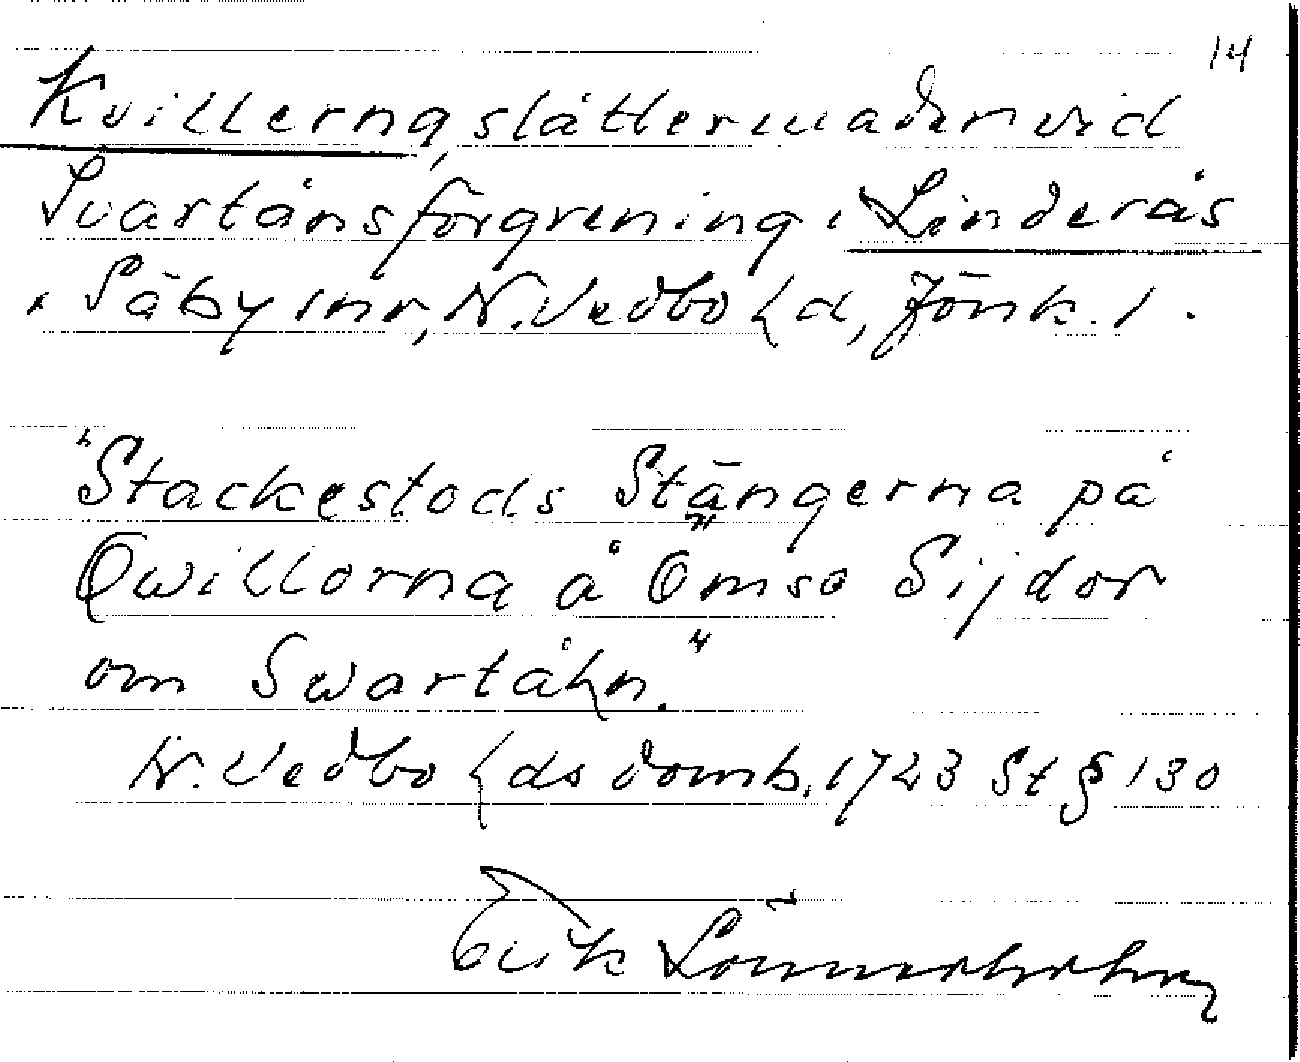 14
Kvillerna, slåttermader vid
Svartåns förgrening i Linderås
i Säby sn, N. Vedbo hd, Jönk. l.
"Stackestods Stängerna på
Qwillorna å Ömse Sijdor
om Swartåhn."
N. Vedbo hds domb. 1723 St § 130
Erik